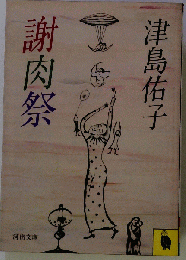 津島佑子
謝肉祭
河出文庫